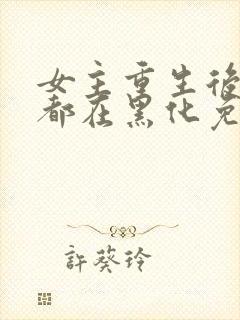 女主重生後
都在黑化免
許葵玲